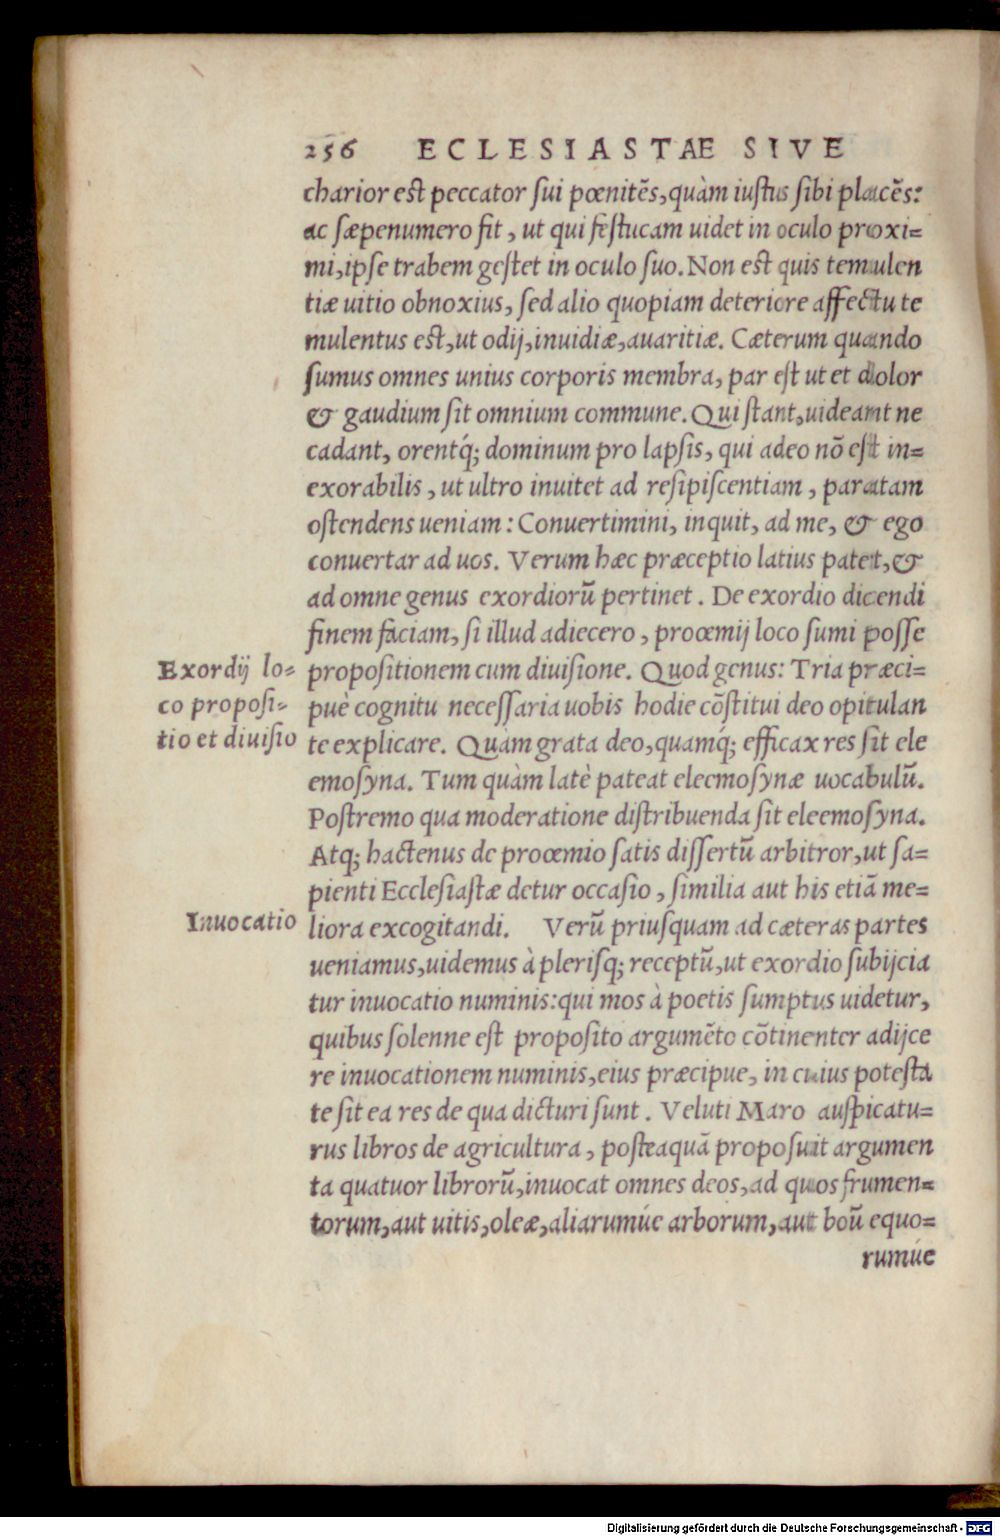 256 ECLESIASTAE SIVE
charior est peccator sui pœnitẽs, quàm iustus sibi placẽs:
ac sæpenumero fit, ut qui festucam uidet in oculo proxi=
mi, ipse trabem gestet in oculo suo. Non est quis temulen
tiæ uitio obnoxius, sed alio quopiam deteriore affectu te
mulentus est, ut odij, inuidiæ, auaritiæ. Cæterum quando
sumus omnes unius corporis membra, par est ut et dolor
& gaudium sit omnium commune. Qui stant, uideant ne
cadant, orentq́; dominum pro lapsis, qui adeo nõ est in=
exorabilis, ut ultro inuitet ad resipiscentiam, paratam
ostendens ueniam: Conuertimini, inquit, ad me, & ego
conuertar ad uos. Verum hæc præceptio latius patet, &
ad omne genus exordiorũ pertinet. De exordio dicendi
finem faciam, si illud adiecero, proœmij loco sumi posse
Exordij lo=
co proposi=
tio et diuisio
propositionem cum diuisione. Quod genus: Tria præci=
puè cognitu necessaria uobis hodie cõstitui deo opitulan
te explicare. Quàm grata deo, quamq́; efficax res sit ele
emosyna. Tum quàm latè pateat eleemosynæ uocabulũ.
Postremo qua moderatione distribuenda sit eleemosyna.
Atq; hactenus de proœmio satis dissertũ arbitror, ut sa=
pienti Ecclesiastæ detur occasio, similia aut his etiã me=
Inuocatio
liora excogitandi. Verũ priusquam ad cæteras partes
ueniamus, uidemus à plerisq; receptũ, ut exordio subijcia
tur inuocatio numinis: qui mos à poetis sumptus uidetur,
quibus solenne est proposito argumẽto cõtinenter adijce
re inuocationem numinis, eius præcipue, in cuius potesta
te sit ea res de qua dicturi sunt. Veluti Maro auspicatu=
rus libros de agricultura, posteaquã proposuit argumen
ta quatuor librorũ, inuocat omnes deos, ad quos frumen=
torum, aut uitis, oleæ, aliarumúe arborum, aut boũ equo=
rumúe
Digitalisierung gefördert durch die Deutsche Forschungsgemeinschaft - DFG